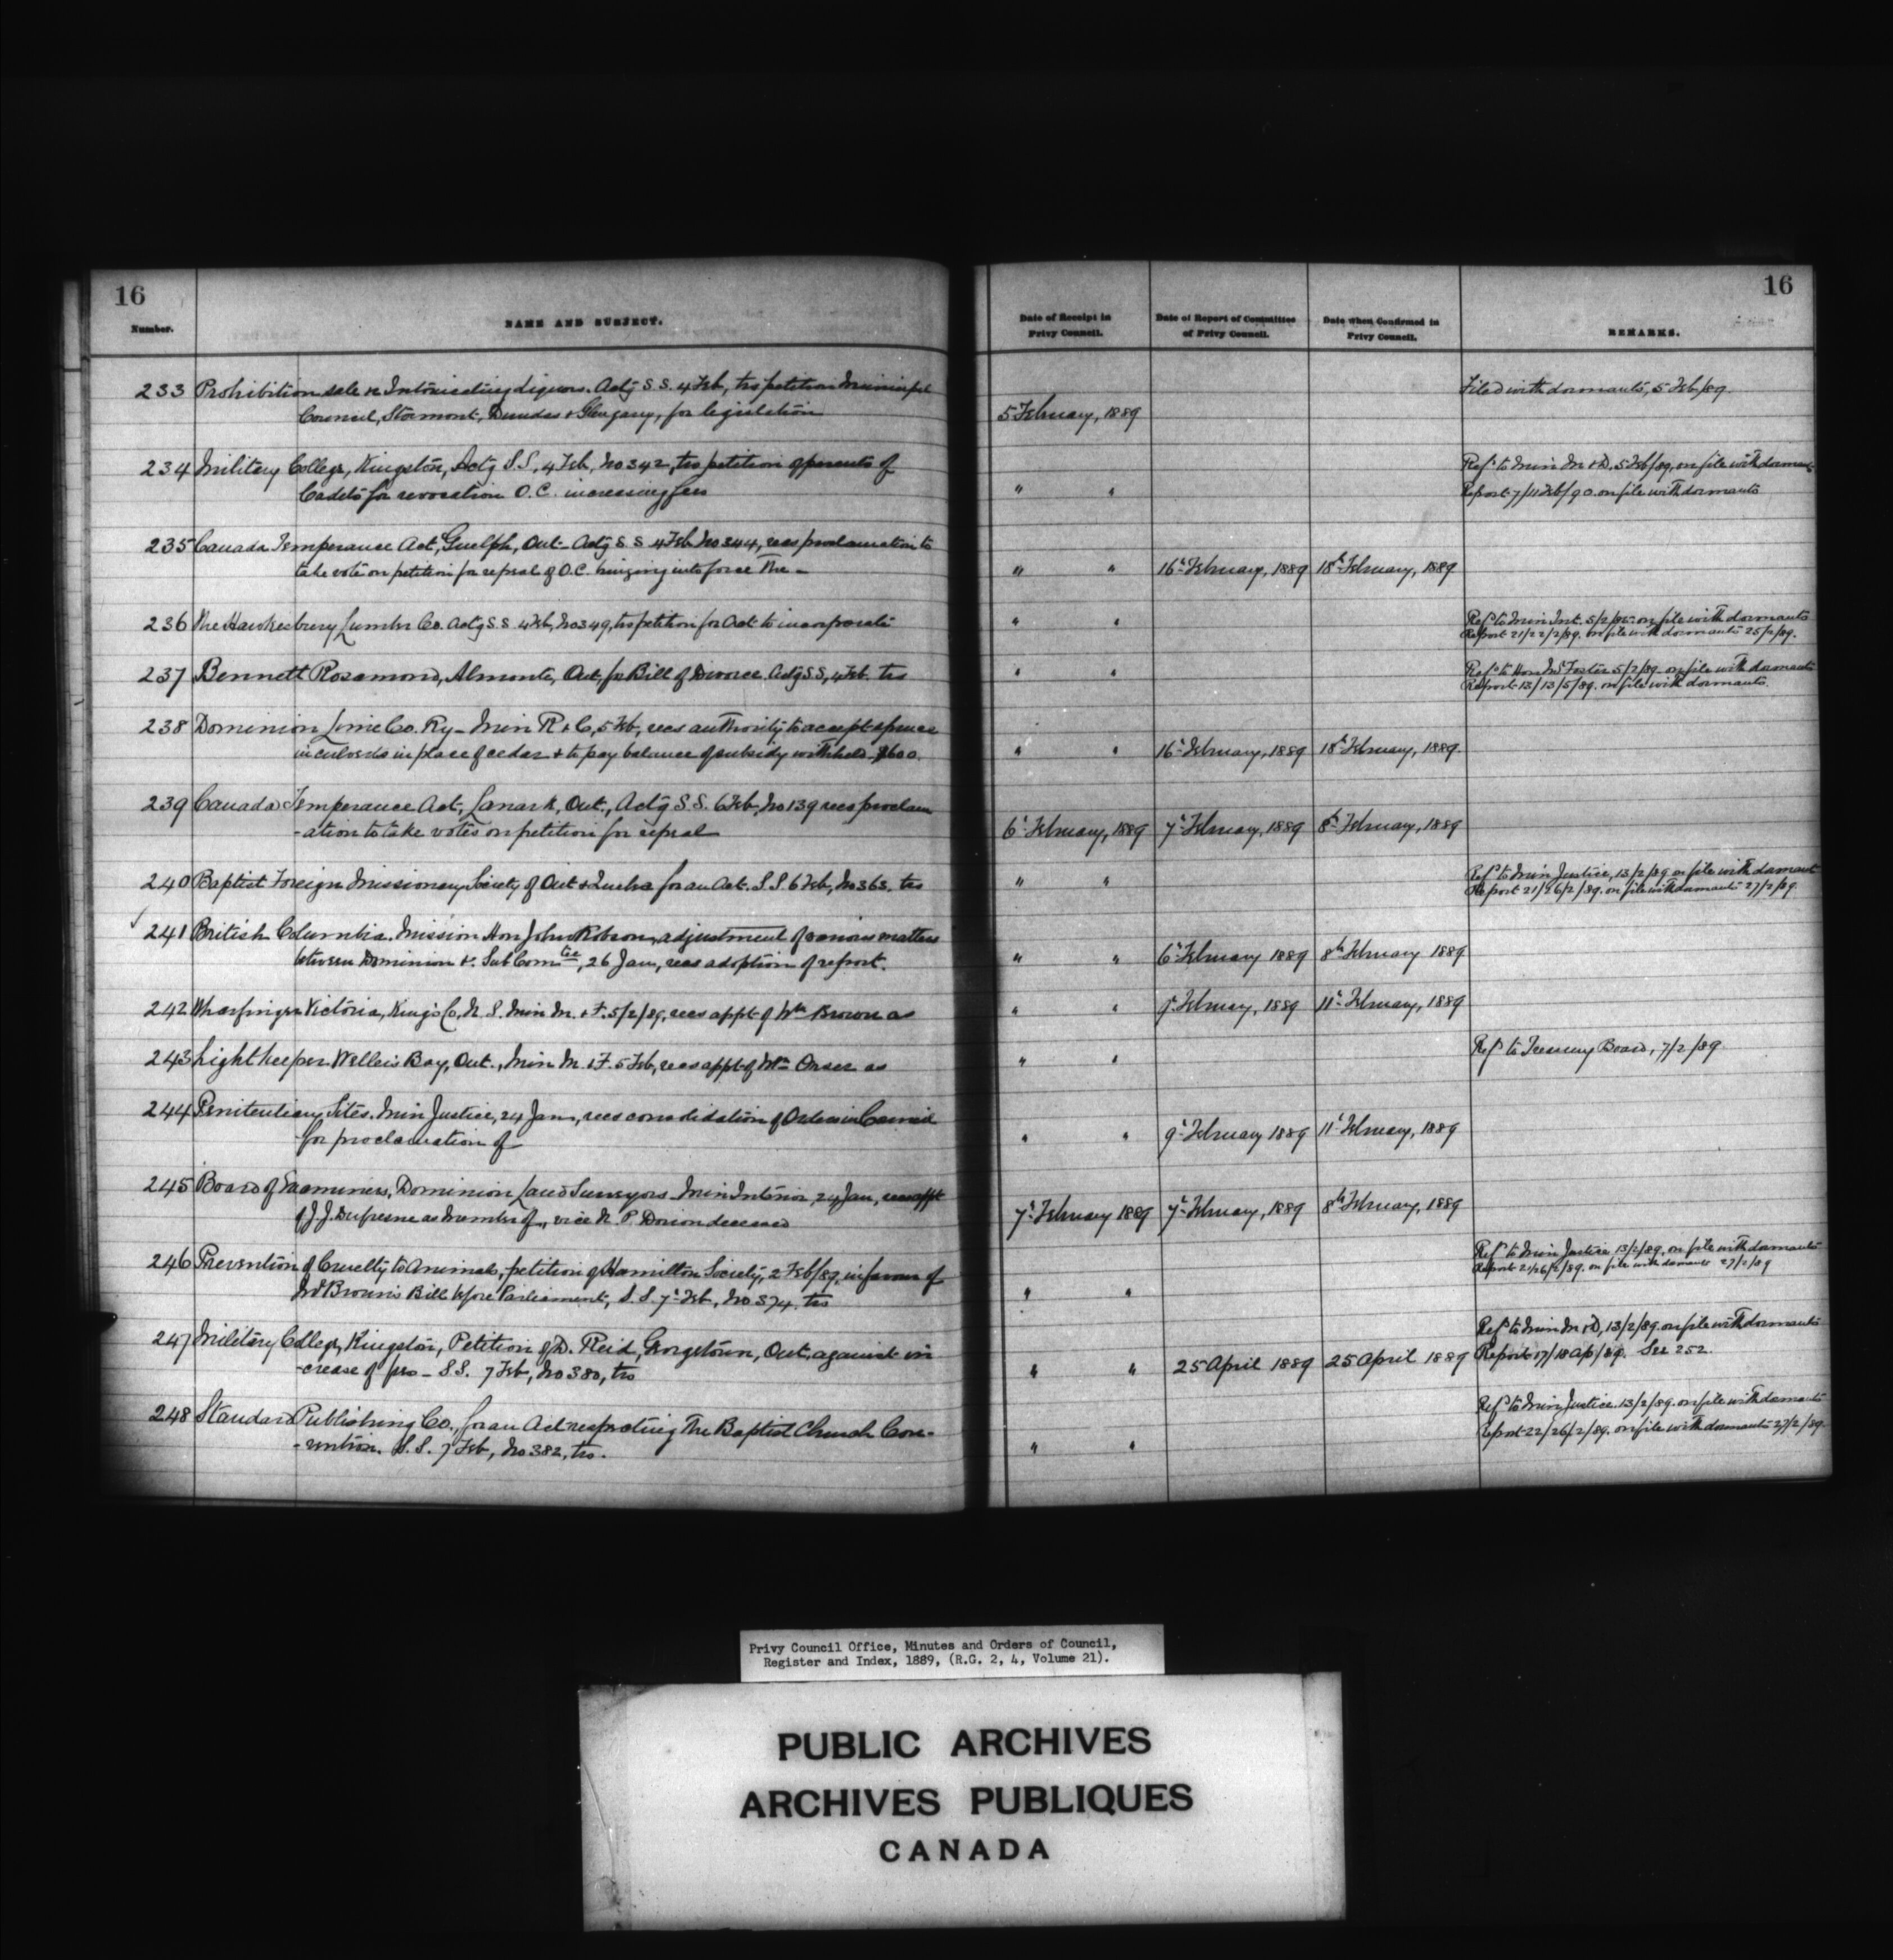 16
16
Number.
NAME AND SUBJECT.
Date of Receipt in Privy Council.
Date of Report of Committee of Privy Council.
Date when Confirmed in Privy Council.
REMARKS.
233 Prohibition sale &c Intoxicating Liquors. Actg S.S. 4 Feb, trs petition Municipal
Council, Stormont, Dundas & Glengary, for legislation
5 February, 1889
Filed with dormants, 5 Feb/89.
234 Military College, Kingston, Actg S.S. 4 Feb, No 342, trs petition of parents of
Cadets for revocation O.C. increasing fees
" "
Refd to Min M & D. 5 Feb/89, on file with dormants
Report 7/11 Feb/90. on file with dormants
235 Canada Temperance Act, Guelph, Ont. Actg S.S 4 Feb No 344, recs proclamation to
take vote on petition for repeal of O.C. bringing into force The -
" " 16th February, 1889 18th February, 1889
236 The Hawkesbury Lumber Co. Actg S.S. 4 Feb, No 349, trs petition for Act to incorporate
" "
Refd to Min Int. 5/2/89. on file with dormants
Report 21/22/2/89. on file with dormants 25/2/89.
237 Bennett Rosamond, Almonte, Ont, for Bill of Divorce. Actg S.S, 4 Feb. trs
" "
Refd to Hon Mr Foster 5/2/89. on file with dormants
Report 13/13/5/89. on file with dormants.
238 Dominion Lime Co. Ry - Min R & C, 5 Feb, recs authority to accept spruce
in culverts in place of cedar & to pay balance of subsidy withheld $600.
" " 16th February, 1889 18th February, 1889
239 Canada Temperance Act, Lanark, Ont., Actg S.S. 6 Feb, No 139 recs proclam
-ation to take votes on petition for repeal
6th February, 1889 7th February, 1889 8th February, 1889
240 Baptist Foreign Missionary Society of Ont & Quebec for an Act. S.S. 6 Feb, No 363. trs
" "
Refd to Min Justice, 13/2/89 on file with dormants
Report 21/26/2/89. on file with dormants 27/2/89.
241 British Columbia. Mission Hon John Robson, adjustment of various matters
between Dominion &. Sub Comtee, 26 Jan, recs adoption of report.
" " 6th February 1889 8th February 1889
242 Wharfinger Victoria, Kings Co, N.S. Min M. & F. 5/2/89, recs appt of Wm Brown as
" " 9th February, 1889 11th February, 1889
243 Lightkeeper Wellers Bay, Ont., Min M. & F. 5 Feb, recs appt of Wm Orser as
" "
Refd to Treasury Board, 7/2/89
244 Penitentiary Sites. Min Justice, 24 Jan, recs consolidation of Orders in Council
for proclamation of
" " 9th February 1889 11th February, 1889
245 Board of Examiners, Dominion Land Surveyors - Min Interior, 24 Jan, recs appt
of J.J. Dufresne as member of, vice N. P. Dorion deceased
7th February 1889 7th February, 1889 8th February, 1889
246 Prevention of Cruelty to Animals, petition of Hamilton Society, 2 Feb/89, in favour of
Mr Brown's Bill before Parliament, S.S. 7th Feb, No 374. trs
" "
Refd to Min Justice, 13/2/89. on file with dormants
Report 21/26/2/89. on file with dormants 27/2/89
247 Military College, Kingston, Petition of D. Reid, Georgetown, Ont, against in
-crease of fees - S.S. 7 Feb, No 380, trs
" " 25 April 1889 25 April 1889
Refd to Min M & D, 13/2/89. on file with dormants
Report 17/18 Ap/89. See 252.
248 Standard Publishing Co., for an Act respecting The Baptist Church Con-
-vention. S.S. 7 Feb, No 382, trs.
" "
Refd to Min Justice. 13/2/89. on file with dormants
Report 22/26/2/89. on file with dormants 27/2/89.
Privy Council Office, Minutes and Orders of Council,
Register and Index, 1889, (R.G. 2, 4, Volume 21).
PUBLIC ARCHIVES
ARCHIVES PUBLIQUES
CANADA